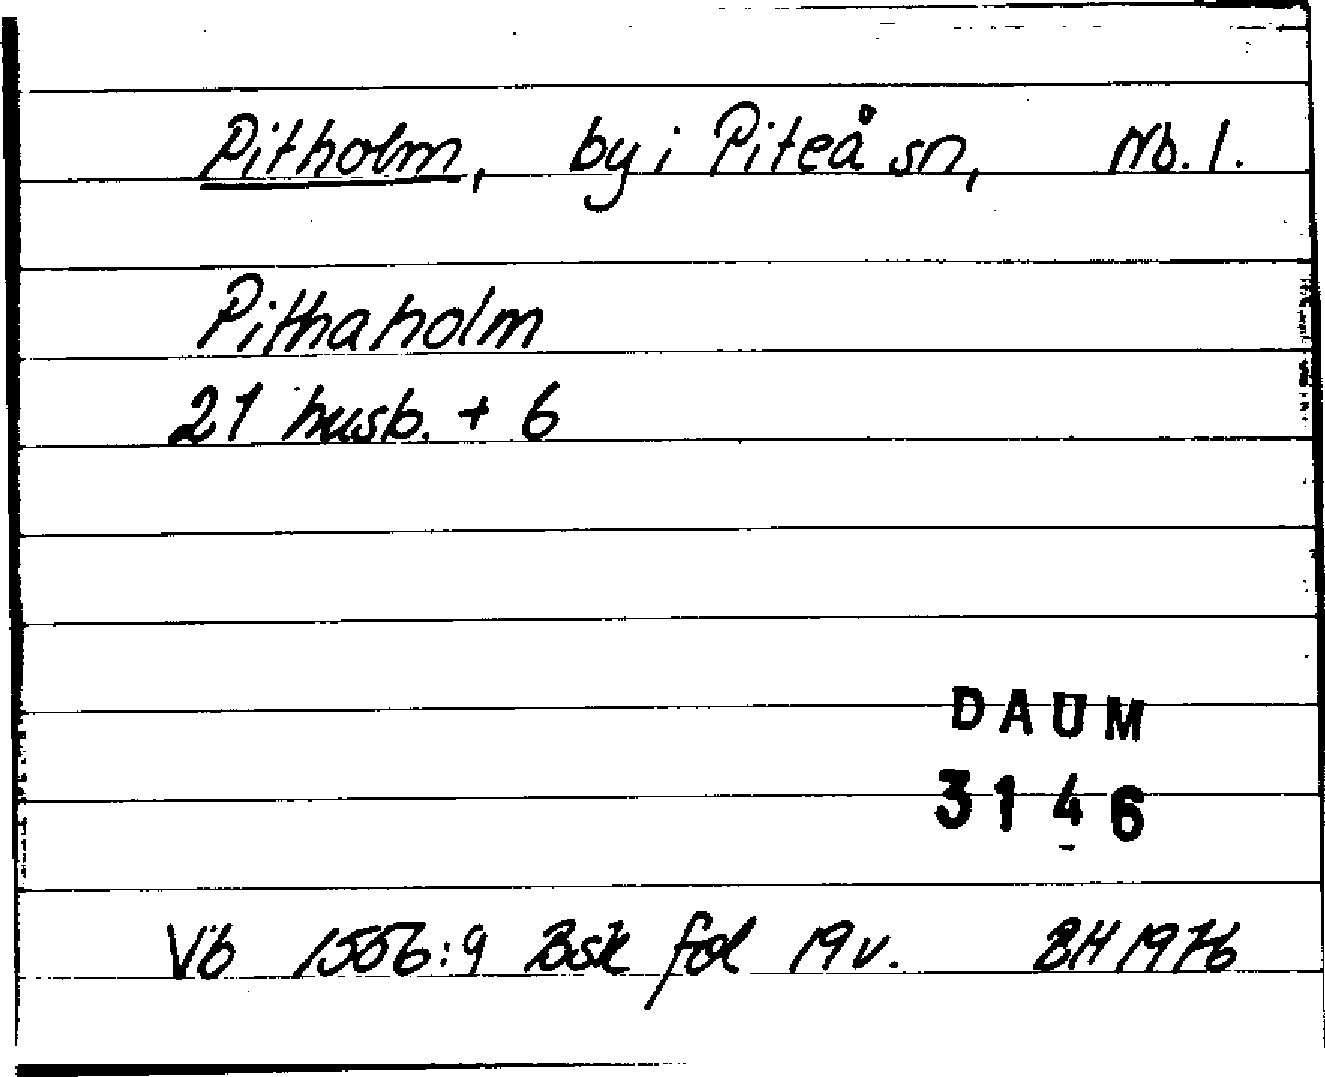 Pitholm, by i Piteå sn, Nb. l.
Pithaholm
21 husb. + 6
DAUM
3146
Vb 1556:9 Bsk fol 19v. BH 1976